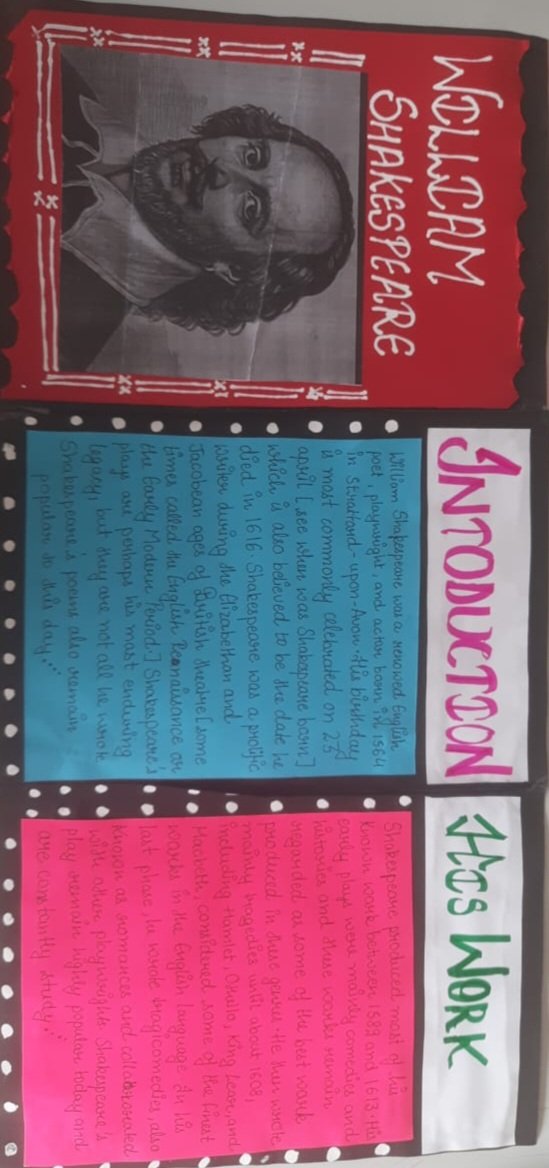 WILLIAM
SHAKESPEARE
INTODUCTION
William Shakespeare was a renowed English
poet, playwright, and actor born in 1564
in Stratford-upon-Avon. His birthday
is most commonly celebrated on 23
april [see when was Shakespeare born]
which is also believed to be the date he
died in 1616. Shakespeare was a prolific
writer during the Elizabethan and
Jacobean ages of British theatre [some
times called the English Renaissance or
the Early Modern Period.] Shakespeare's
plays are perhaps his most enduring
legacy, but they are not all he wrote
Shakespeare's poems also remain
popular to this day...
HIS WORK
Shakespeare produced most of his
known work between 1589 and 1613. His
early plays were mainly comedies and
histories and these works remain
regarded as some of the best work
produced in these genres. He then wrote
mainly tragedies until about 1608,
including Hamlet, King Lear, and
Macbeth, considered some of the finest
works in the English language. In his
last phase, he wrote tragicomedies, also
known as romances and collaborated
with other playwrights. Shakespeare's
play remain highly popular today and
are constantly study...